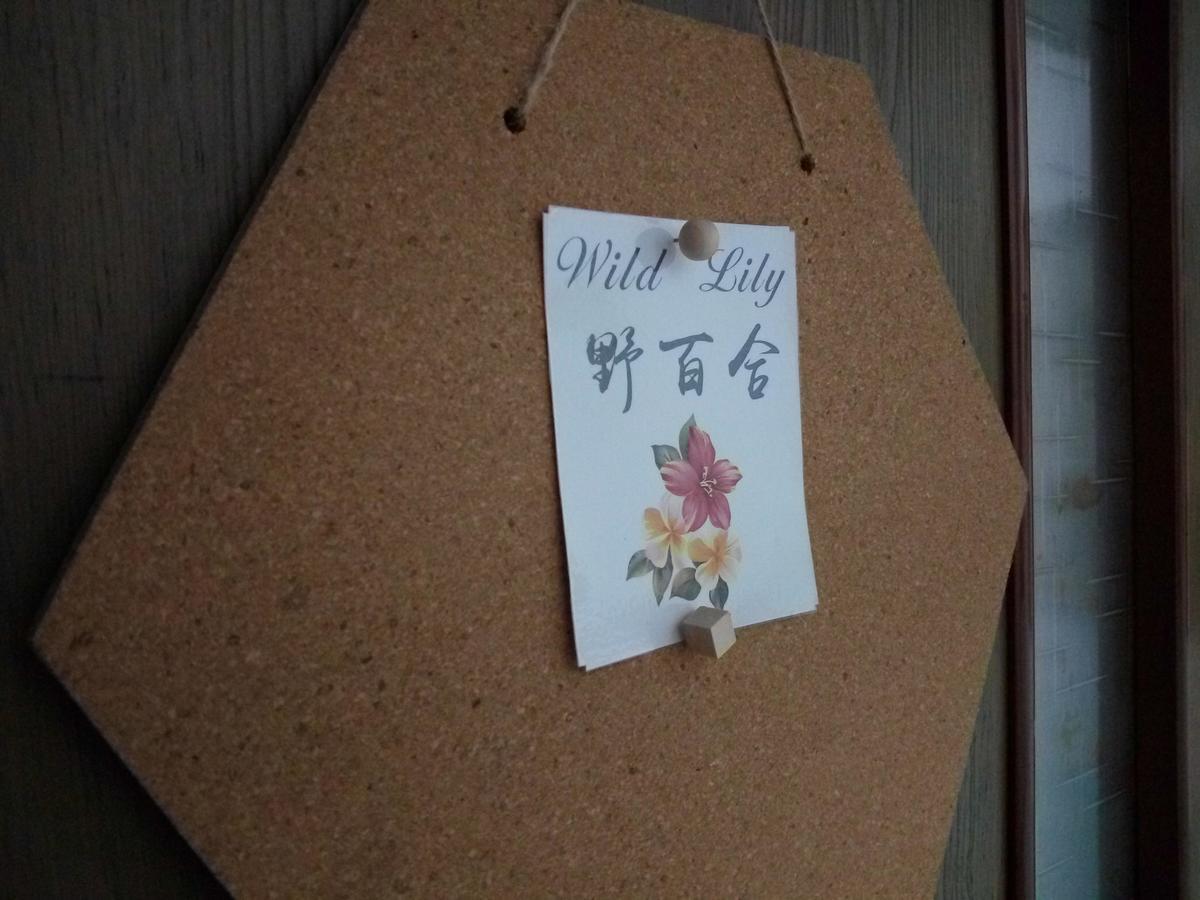 Wild Lily
野百合